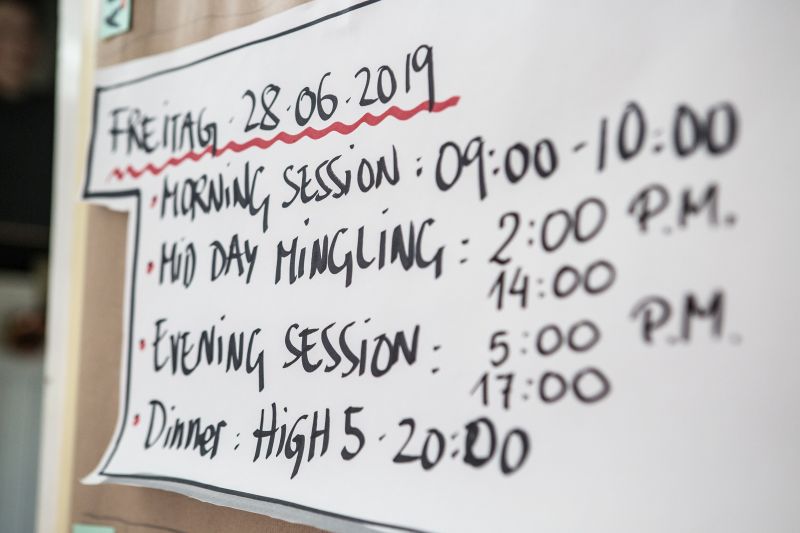 FREITAG · 28·06·2019
• MORNING SESSION : 09:00 - 10:00
• MID DAY MINGLING : 2:00 P.M.
14:00
• EVENING SESSION : 5:00 P.M.
17:00
• Dinner : HIGH 5 · 20:00